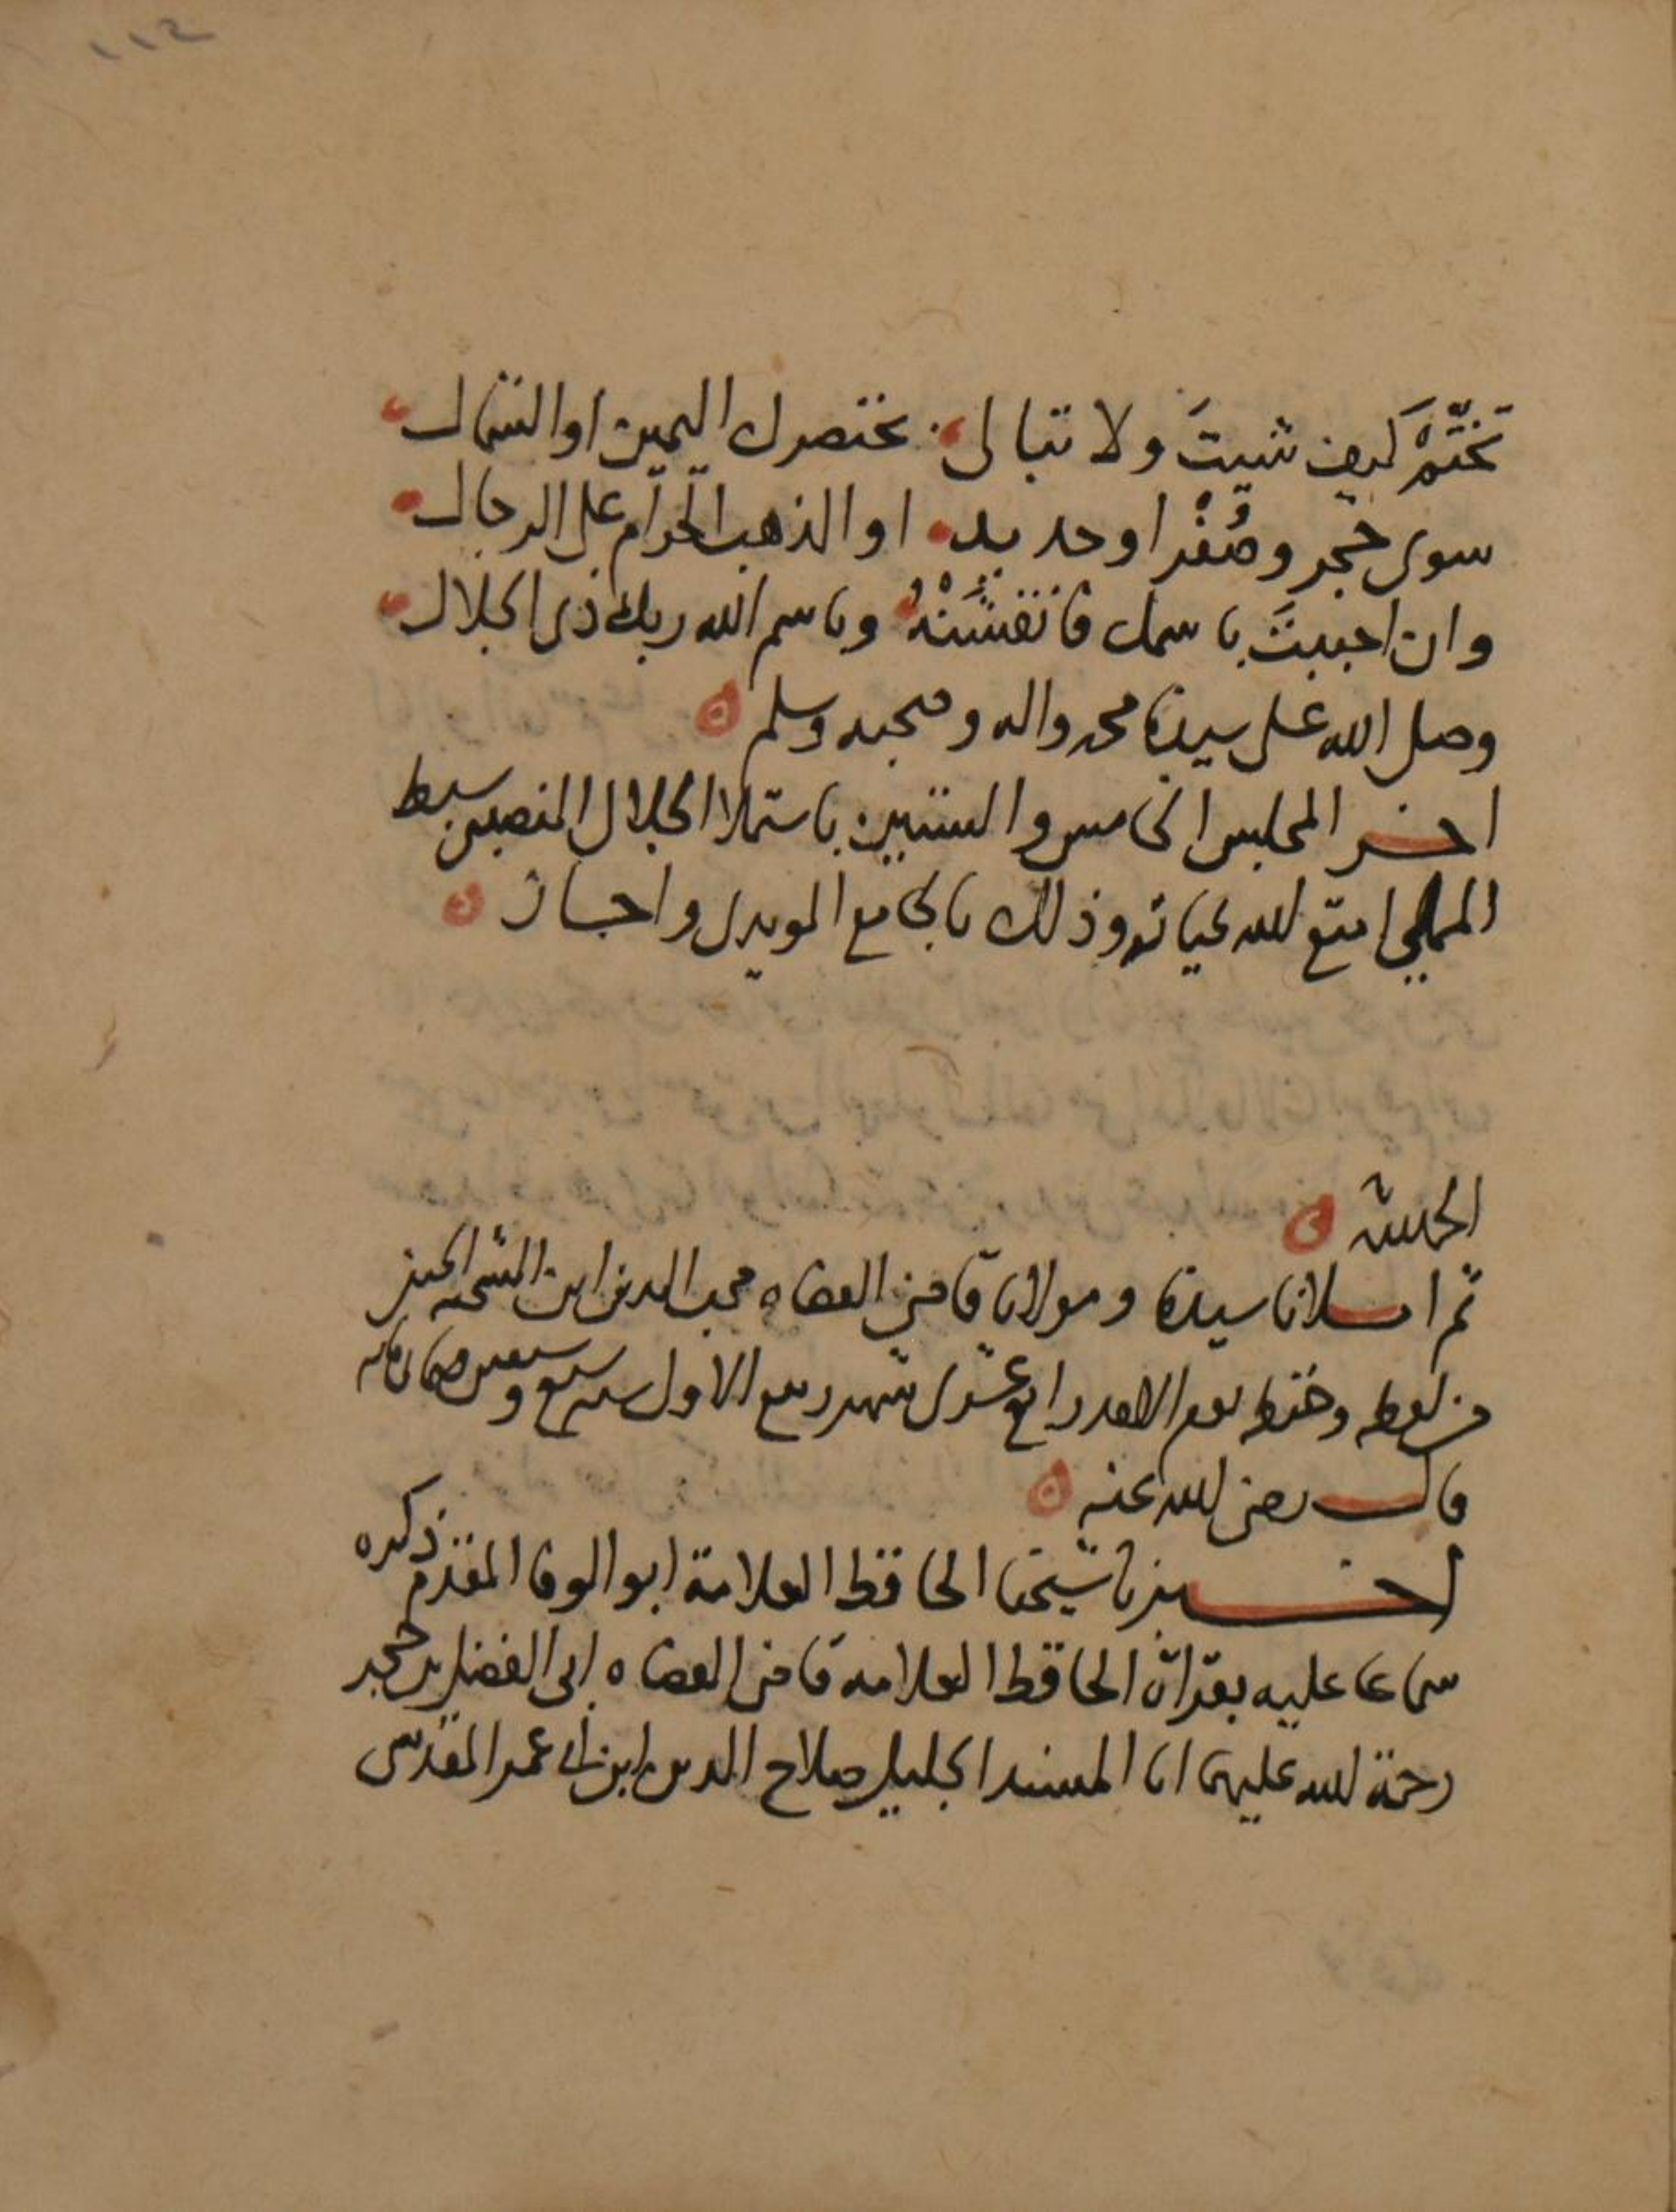 ١١٤
تَخَتَّمْ كيف شيتَ ولا تبالى بخنصرك اليمين او الشمال
سوى حجر وصُفْر او حديد او الذهب الحرام على الرجال
وان احببتَ باسمك فانقشَنْهُ وباسم الله ربك ذى الجلال
وصلى الله على سيدنا محمد واله وصحبه وسلم
اخر المجلس الخامس والستين باستملا الجلال النصيبى سبط
المملي امتع الله بحياته وذلك بالجامع المويدى واجاز
الحمد لله
ثم املانا سيدنا ومولانا قاضي القضاه محب الدين ابن الشحنه الحنفي
من لفظه وحفظه يوم الاحد رابع عشرى شهر ربيع الاول سنه سبع وسبعين وثمان مائه
قال رضى الله عنه
اخبرنا شيخنا الحافظ العلامة ابو الوفا المقدم ذكره
سماعا عليه بقراة الحافظ العلامه قاضى القضاه ابى الفضل بن حجر
رحمة الله عليهما انا المسند الجليل صلاح الدين ابن ابى عمر المقدسى